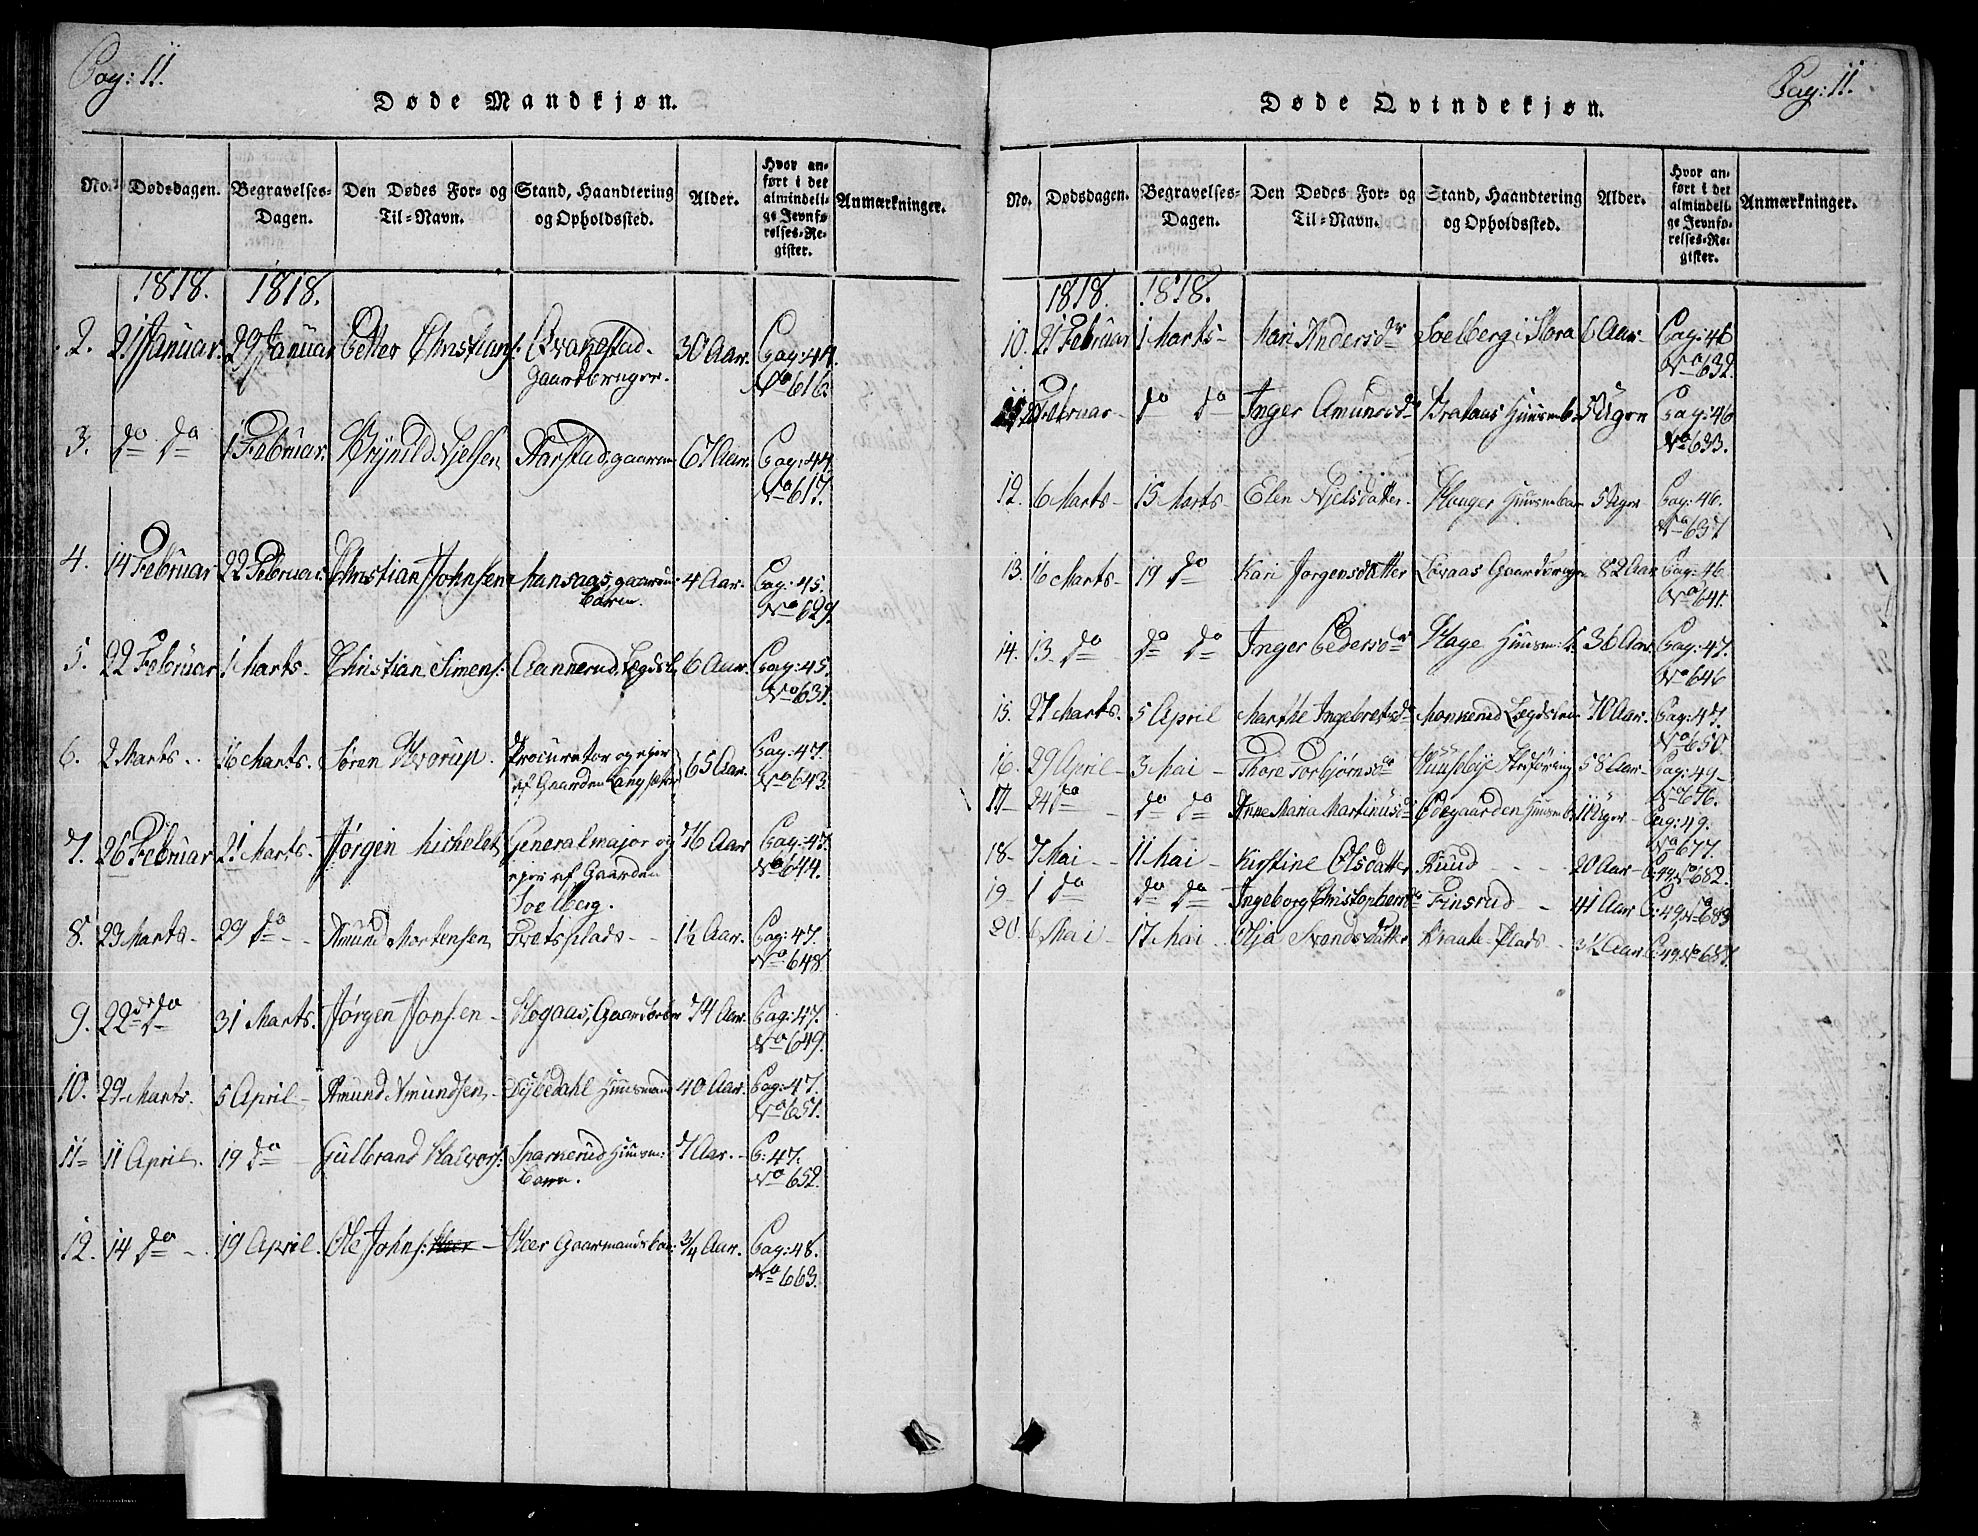 Pag: 11.
Døde Mandkjøn.
No. Dødsdagen. Begravelses-Dagen. Den Dødes For- og Til-Navn. Stand, Haandtering og Opholdssted. Alder. Hvor anført i det almindelige Jevnførelses-Register. Anmærkninger.
1818. 1818.
2. 21 Januar. 29 Januar Petter Christians: 30 Aar. Pag: 44.
Gaardbruger. No 616.
3. do do 1 Februar. Brynild Nielsen Aarstad, gaarm 67 Aar. Pag: 44.
No 617.
4. 14 Februar 22 Februar. Christian Johnsen Hansaas, gaardm 4 Aar. Pag: 45.
barn. No 629.
5. 22 Februar 1 Marts. Christian Simens: Lægdsl. 6 Aar. Pag: 45.
No 631.
6. 2 Marts. 16 Marts. Søren Hvorup. Procurator og ejer 65 Aar. Pag: 47.
af Gaarden Langsæter No 643.
7. 26 Februar 21 Marts. Jørgen Michelet Generalmajor og 76 Aar Pag: 47.
ejer af Gaarden No 644.
Soelberg.
8. 23 Marts. 29 do Amund Mortensen Tvetsplads 1½ Aar. Pag: 47.
No 648.
9. 22 do 31 Marts. Jørgen Jonsen Skogaas, Gaardbr 74 Aar. Pag: 47.
No 649.
10. 29 Marts. 5 April Amund Amundsen Dybedahl Huusmand 40 Aar. Pag: 47.
No 651.
11 11 April. 19 do Gulbrand Halvors: Sparnerud Huusm: 7 Aar. P: 47.
Barn. No 652.
12. 14 do 19 April. Ole Johns: Skeer Gaarmandsbar: ¾ Aar. Pag: 48.
No 663.
Pag: 11.
Døde Qvindekjøn.
No. Dødsdagen. Begravelses-Dagen. Den Dødes For- og Til-Navn. Stand, Haandtering og Opholdssted. Alder. Hvor anført i det almindelige Jevnførelses-Register. Anmærkninger.
1818. 1818.
10. 21 Februar 1 Marts Mari Andersdr Soelberg i Kraa 6 Aar Pag: 46
No 632.
11 Februar do do Inger Amundsdr Brataas Huusmb 5 Ugen Pag: 46
No 633.
12. 6 Marts 15 Marts Elen Njelsdatter. Huusmbar 5 Uger Pag: 46.
No 637
13. 16 Marts 19 do Kari Jørgensdatter Løvaas Gaardbruger 82 Aar Pag: 46
No 641.
14. 13 do do do Inger Pedersdr Hage Huusm: 36 Aar. Pag: 47.
No 646
15. 27 Marts. 5 April Marthe Ingebretsd Monnerud Lægdslem 70 Aar. Pag: 47.
No 650.
16. 29 April 3 Mai Thore Torbjørnsdr 58 Aar Pag: 49
No 676.
17 24 do do do Anne Maria Martinusd Ødegaarden Huusmb: 11 Uger Pag: 49.
No 677.
18 7 Mai 11 Mai Kirstine Olsdatter Ruud 20 Aar P: 49. No 682.
19 1 do do do Ingeborg Christophersd Finsrud 41 Aar P: 49. No 683
20. 6 Mai 17 Mai Olja Svendsdatter Braate-Plads 3½ Aar P: 49. No 687.